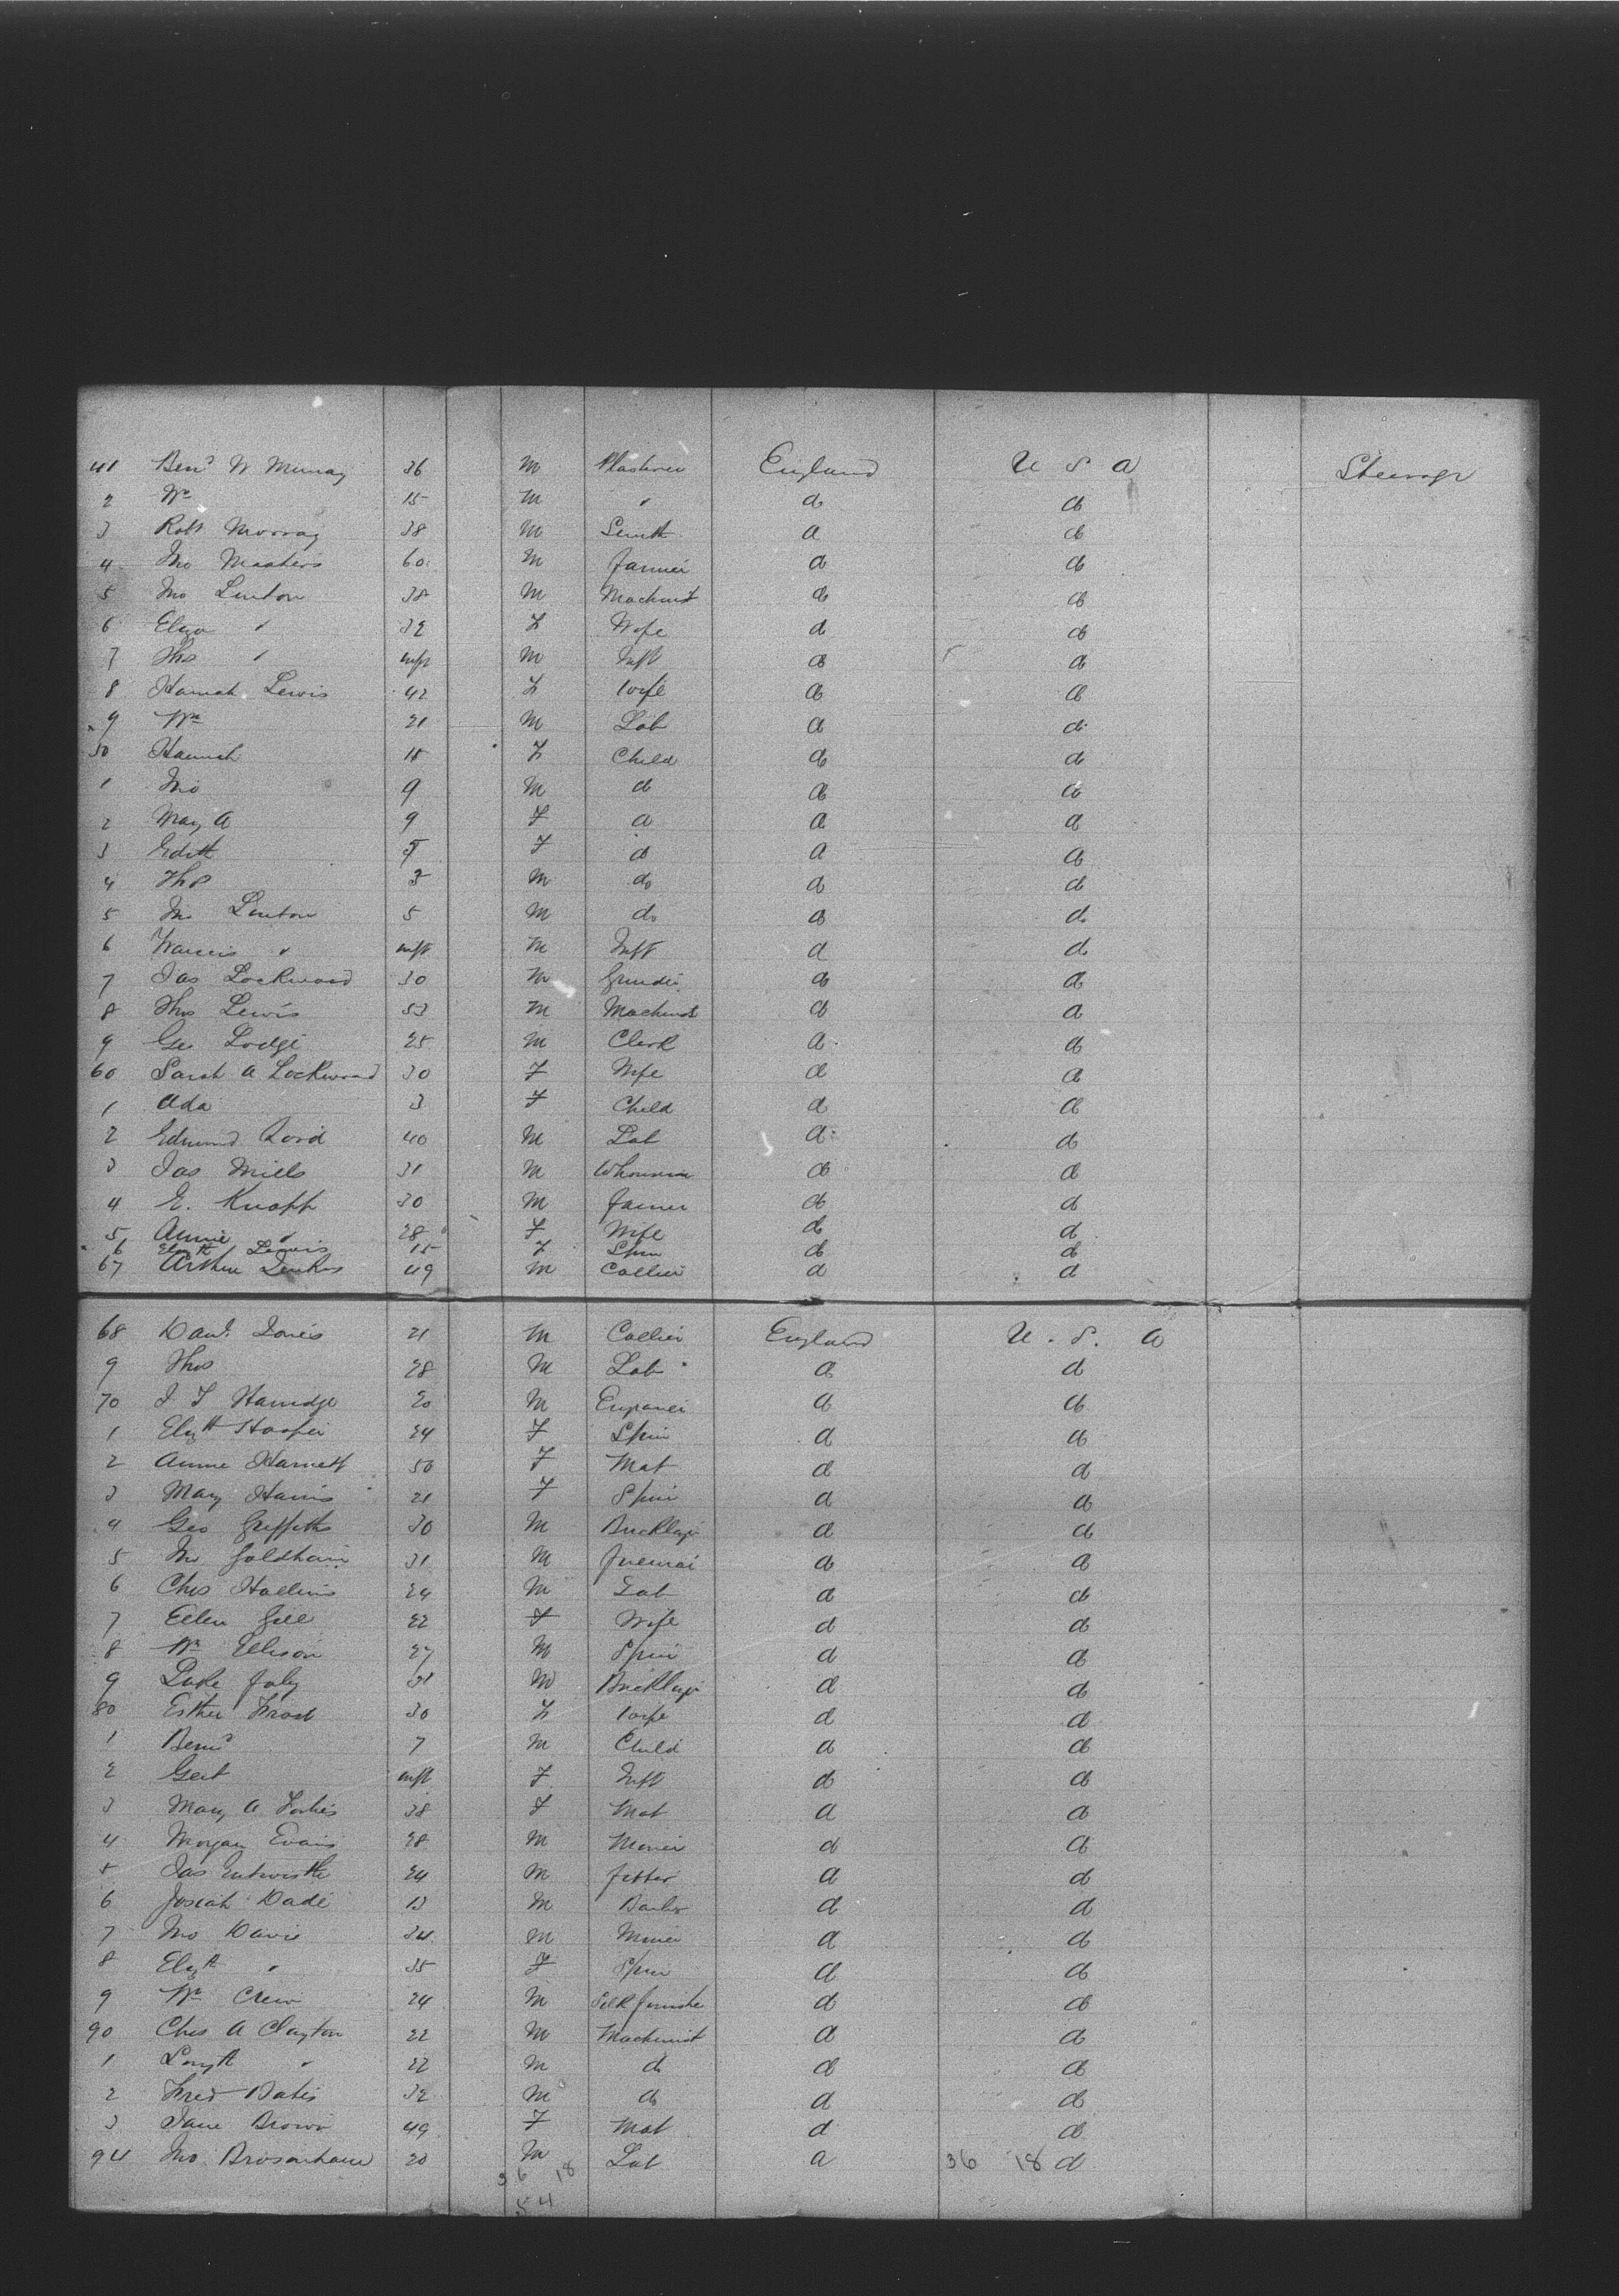 41 Benj W Murray 36 M Plasterer England U S A Steerage
2 Wm 15 M " do do
3 Robt Morray 38 M Smith do do
4 Jno Masters 60 M Farmer do do
5 Jno Linton 38 M Machinist do do
6 Eliza " 32 F Wife do do
7 Thos " inft M Inft do do
8 Hannah Lewis 42 F Wife do do
9 Wm 21 M Lab do do
50 Hannah 15 F Child do do
1 Jno 9 M do do do
2 Mary A 9 F do do do
3 Edith F do do do
4 Thos 3 M do do do
5 Jno Linton 5 M do do do
6 Francis " inft M Inft do do
7 Jas Lockwood 30 M Grinder do do
8 Thos Lewis 53 M Machinist do do
9 Geo Lodge 25 M Clerk do do
60 Sarah A Lockwood 30 F Wife do do
1 Ada 3 F Child do do
2 Edmund Lord 40 M Lab do do
3 Jas Mills 31 M Whouseman do do
4 E. Knapp 30 M Farmer do do
5 Annie " 28 F Wife do do
6 Elizth Lewis 15 F Spin do do
67 Arthur Jenkins 49 M Collier do do
68 Danl. Jones 21 M Collier England U. S. A
9 Thos 28 M Lab do do
70 J T Harridge 20 M do do
1 Elizth Hooper 24 F Spin do do
2 Annie Harnett 50 F Mat do do
3 Mary Harris 21 F Spin do do
4 Geo Griffiths 30 M Bricklayr do do
5 Jno 31 M do do
6 Chas Hollins 24 M Lab do do
7 Ellen Gill 22 F Wife do do
8 Wm Ellison 27 M Spin do do
9 Luke Foley 31 M Bricklayr do do
80 Esther Frost 30 F Wife do do
1 Benj 7 M Child do do
2 Gert inft F Inft do do
3 Mary A 38 F Mat do do
4 Morgan Evans 28 M Miner do do
5 Jas Entwistle 24 M Fitter do do
6 Josiah Dade 13 M do do
7 Jno Davis 34 M Miner do do
8 Elizth " 35 F Spin do do
9 Wm Crew 24 M Silk do do
90 Chas A Clayton 22 M Machinist do do
1 " 22 M do do do
2 Fred Bates 32 M do do do
3 Jane Brown 49 F Mat do do
94 Jno 20 M Lab do 36 18 do
36 18
54